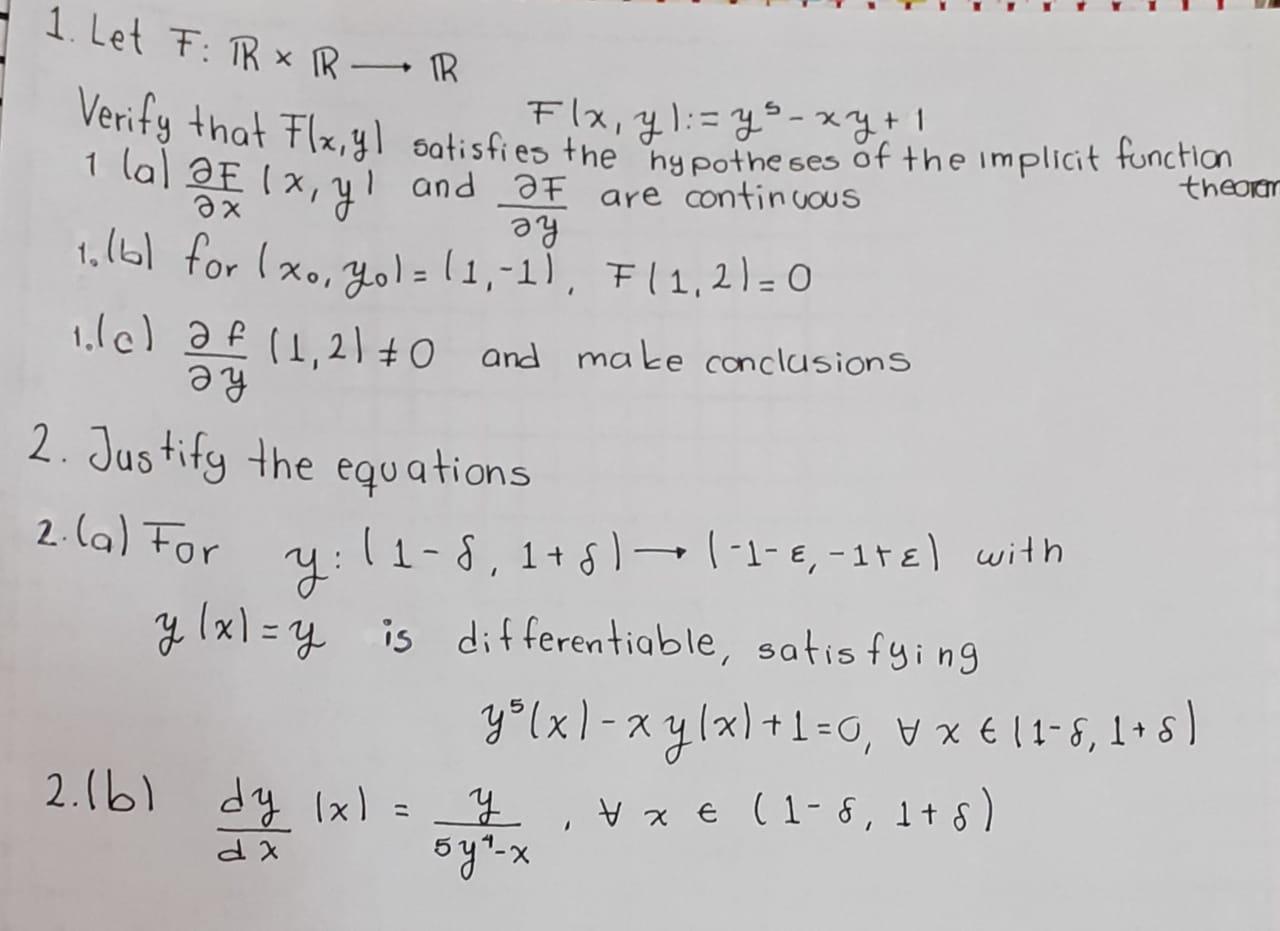 1. Let F: ℝ × ℝ → ℝ
F(x, y):= y⁵ - xy + 1
Verify that F(x,y) satisfies the hypotheses of the implicit function theorem
1 (a) ∂F/∂x (x, y) and ∂F/∂y are continuous
1.(b) for (x₀, y₀) = (1, -1), F(1, 2) = 0
1.(c) ∂f/∂y (1, 2) ≠ 0 and make conclusions
2. Justify the equations
2.(a) For y: (1 - δ, 1 + δ) → (-1 - ε, -1 + ε) with
y(x) = y is differentiable, satisfying
y⁵(x) - x y(x) + 1 = 0, ∀ x ∈ (1 - δ, 1 + δ)
2.(b) dy/dx (x) = y/(5y⁴ - x), ∀ x ∈ (1 - δ, 1 + δ)